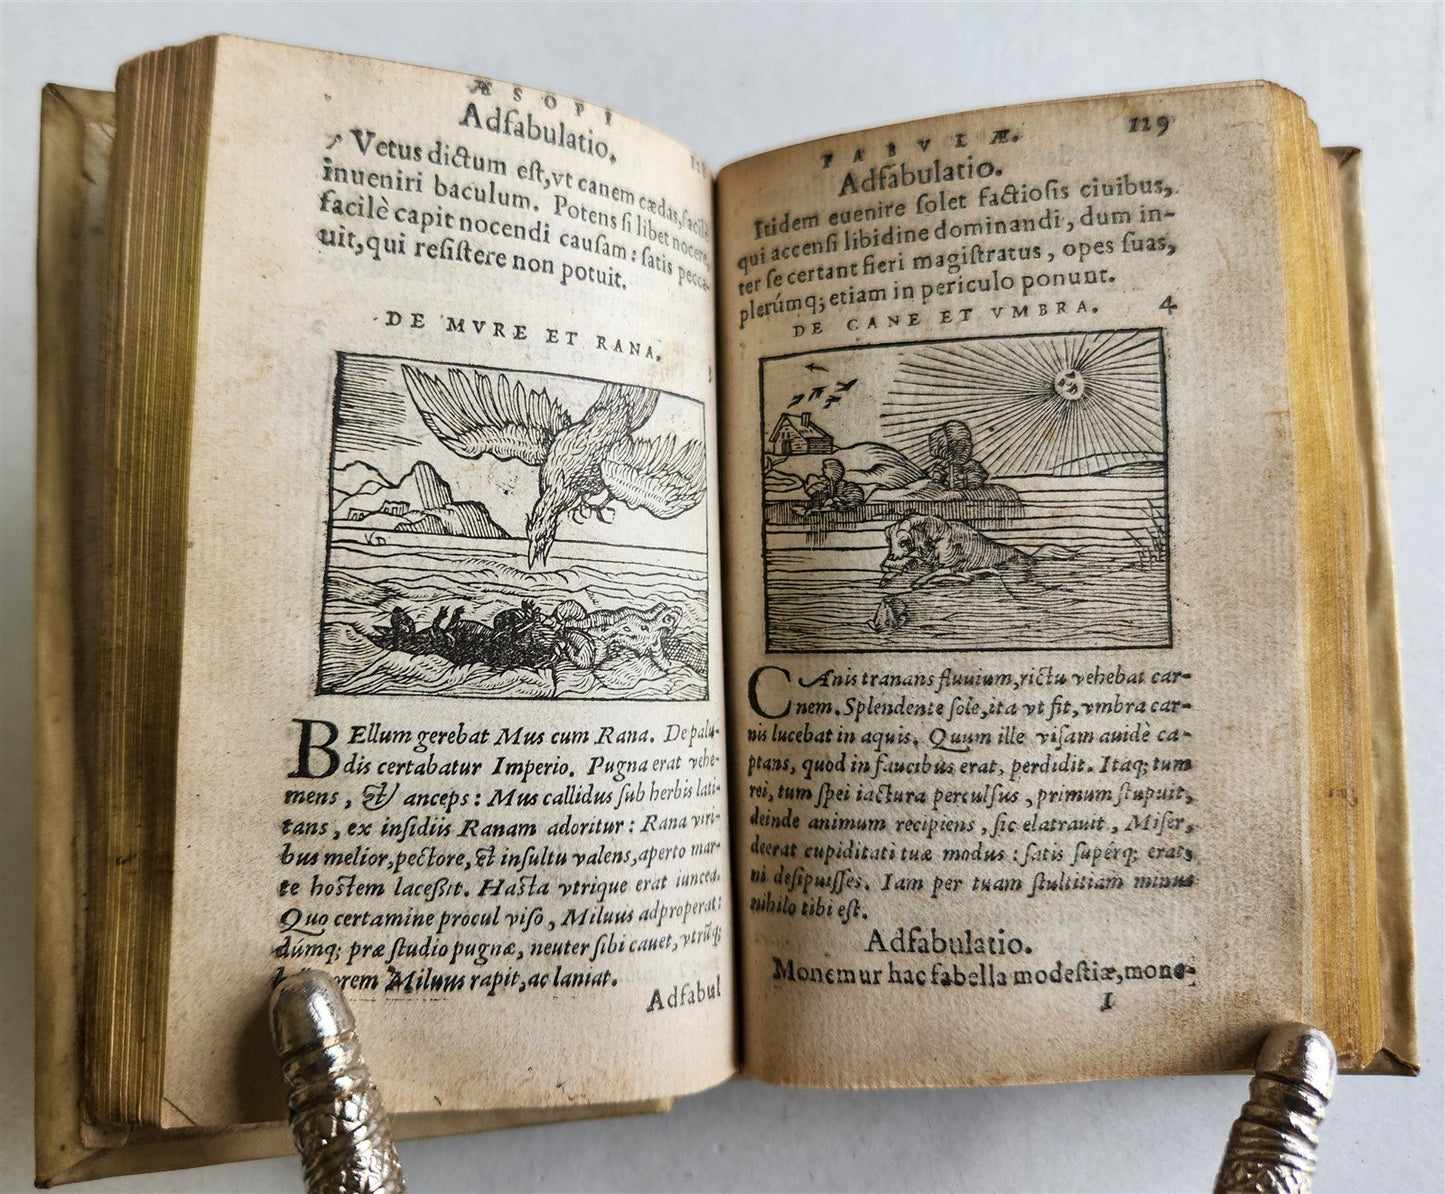 ÆSOPI
Adfabulatio.
Vetus dictum est, vt canem cædas, facilè
inueniri baculum. Potens si libet nocere,
facilè capit nocendi causam: satis pecca-
uit, qui resistere non potuit.
DE MVRE ET RANA. 3
VD
BEllum gerebat Mus cum Rana. De palu-
dis certabatur Imperio. Pugna erat vehe-
mens, & anceps: Mus callidus sub herbis lati-
tans, ex insidiis Ranam adoritur: Rana viri-
bus melior, pectore, & insultu valens, aperto mar-
te hostem lacessit. Hasta vtrique erat iuncea.
Quo certamine procul viso, Miluus adproperat:
dúmq; præ studio pugnæ, neuter sibi cauet, vtrúq;
Miluus rapit, ac laniat.
Adfabul
FABVLÆ. 129
Adfabulatio.
Itidem euenire solet factiosis ciuibus,
qui accensi libidine dominandi, dum in-
ter se certant fieri magistratus, opes suas,
plerúmq; etiam in periculo ponunt.
DE CANE ET VMBRA. 4
CAnis tranans fluuium, rictu vehebat car-
nem. Splendente sole, ita vt fit, vmbra car-
nis lucebat in aquis. Quum ille visam auidè ca-
ptans, quod in faucibus erat, perdidit. Itaq; tum
rei, tum spei iactura perculsus, primum stupuit,
deinde animum recipiens, sic elatrauit, Miser,
deerat cupiditati tuæ modus: satis supérq; erat,
ni desipuisses. Iam per tuam stultitiam minus
nihilo tibi est.
Adfabulatio.
Monemur hac fabella modestiæ, mone-
I